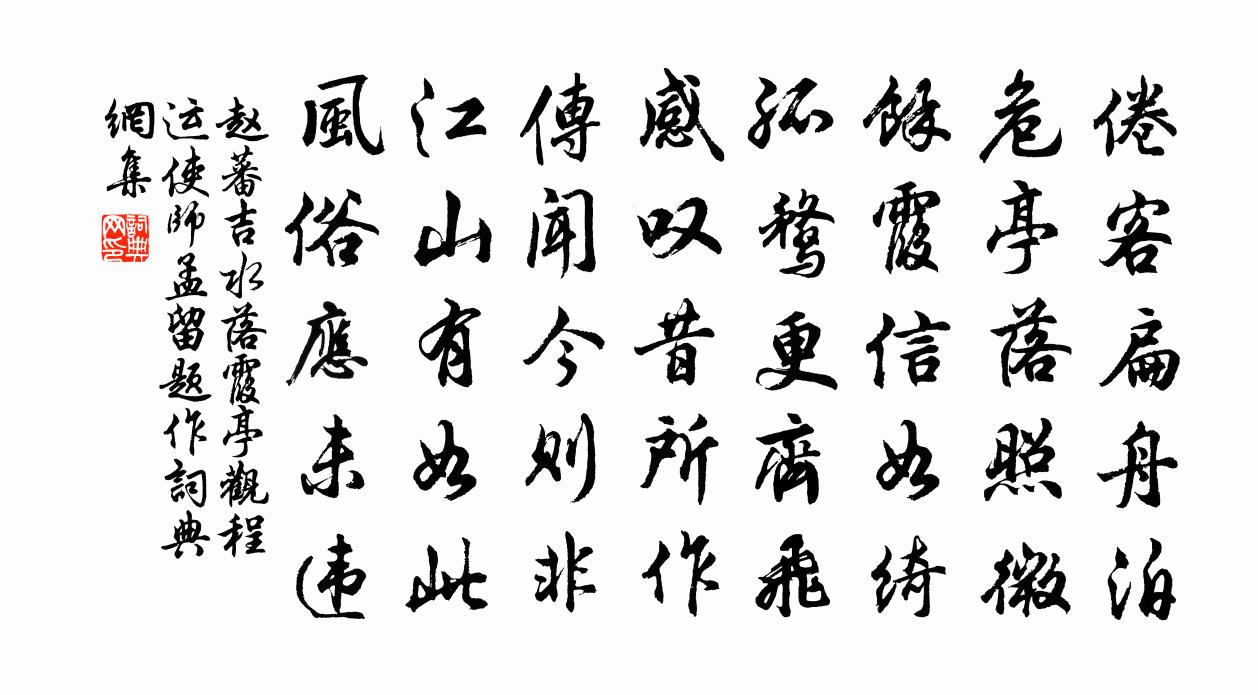 倦客扁舟泊
危亭落照微
餘霞信如綺
孤鶩更齊飛
感叹昔所作
傳聞今则非
江山有如此
風俗應未违
赵蕃吉水落霞亭觀程
运使師孟留题作詞典
網集
詞典網印